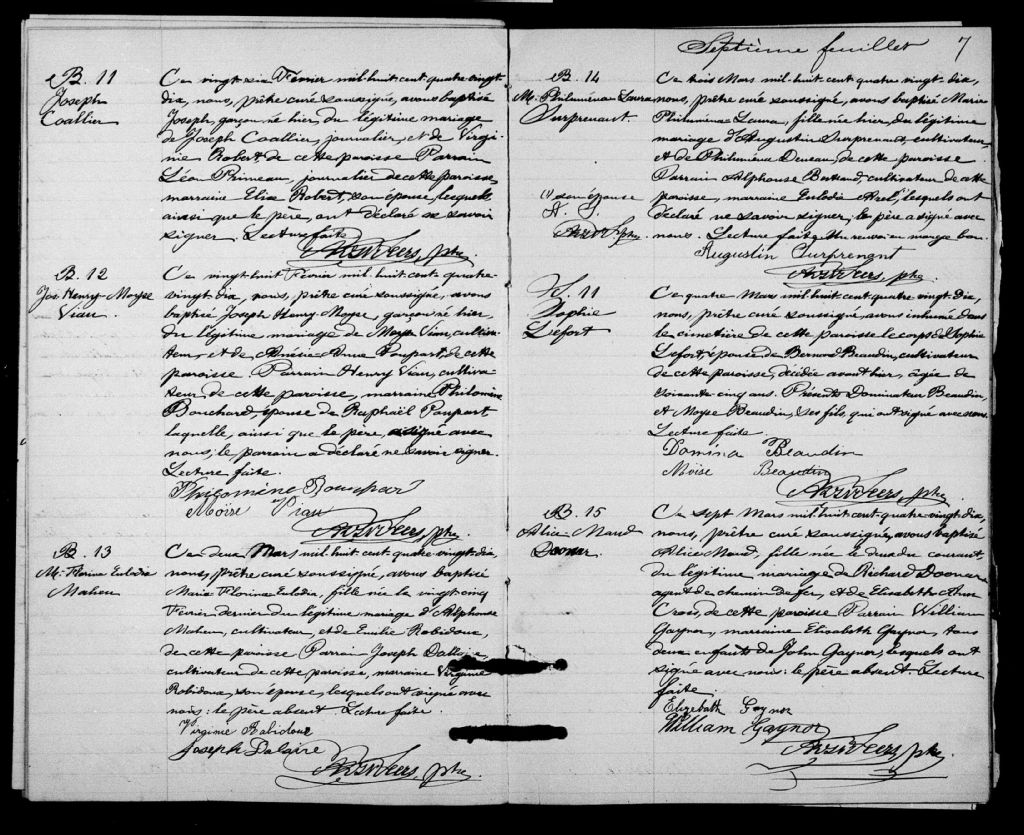 B. 11
Joseph
Coallier
Ce vingt six Février mil huit cent quatre vingt
dix, nous, prêtre curé soussigné, avons baptisé
Joseph, garçon né hier, du légitime mariage
de Joseph Coallier, journalier, et de Virgi-
nie Robert de cette paroisse Parrain
Léon Primeau, journalier de cette paroisse,
marraine Elise Robert, son épouse, lesquels
ainsi que le père, ont déclaré ne savoir
signer. Lecture faite
ptre.
B. 12
Jos Henry Moyse
Viau
Ce vingt huit Février mil huit cent quatre-
vingt dix, nous, prêtre curé soussigné, avons
baptisé Joseph Henry Moyse, garçon né hier,
du légitime mariage de Moyse Viau, cultiva-
teur, et de Anna Poupart, de cette
paroisse Parrain Henry Viau, cultiva-
teur de cette paroisse, marraine Philomène
Bouchard, épouse de Raphaël Poupart
laquelle, ainsi que le père, a signé avec
nous; le parrain a déclaré ne savoir signer.
Lecture faite.
Philomène
Moïse Viau
ptre.
B. 13
M. Florina Eulodia
Maheu
Ce deux Mars mil huit cent quatre vingt dix,
nous, prêtre curé soussigné, avons baptisé
Marie Florina Eulodia, fille née le vingt cinq
Février dernier du légitime mariage d'Alphonse
Maheu, cultivateur, et de Emilie Robidoux,
de cette paroisse Parrain Joseph Dallaire
cultivateur de cette paroisse, marraine Virginie
Robidoux, son épouse, lesquels ont signé avec
nous: le père absent. Lecture faite.
Virginie Robidoux
Joseph Dalaire
ptre.
Septième feuillet 7
B. 14
M. Philumèna Laura
Surprenant
Ce trois Mars mil huit cent quatre vingt dix,
nous, prêtre curé soussigné, avons baptisé Marie
Philumèna Laura, fille née hier, du légitime
mariage d'Augustin Surprenant, cultivateur,
et de Philumèna de cette paroisse
Parrain Alphonse Bertrand, cultivateur de cette
paroisse, marraine Eulodie lesquels ont
déclaré ne savoir signer; le père a signé avec
nous. Lecture faite. Un renvoi en marge bon.
(1) son épouse
Augustin Surprenant
ptre.
S. 11
Sophie
Lefort
Ce quatre Mars mil huit cent quatre vingt dix,
nous, prêtre curé soussigné, avons inhumé dans
le cimetière de cette paroisse le corps de Sophie
Lefort, épouse de Bernard Beaudin, cultivateur
de cette paroisse, décédée avant hier, âgée de
soixante cinq ans. Présents Dominateur Beaudin,
et Moyse Beaudin, ses fils, qui ont signé avec nous.
Lecture faite.
Domina Beaudin
Moïse Beaudin
ptre.
B. 15
Alice Maud
Dooner.
Ce sept Mars mil huit cent quatre-vingt dix,
nous, prêtre curé soussigné, avons baptisé
Alice Maud, fille née le deux du courant
du légitime mariage de Richard Dooner
agent de chemin de fer, et de Elisabeth
de cette paroisse Parrain William
Gaynor, marraine Elisabeth Gaynor, tous
deux enfants de John Gaynor, lesquels ont
signé avec nous: le père absent. Lecture
faite
Elizebeth Gaynor
William Gaynor
ptre.